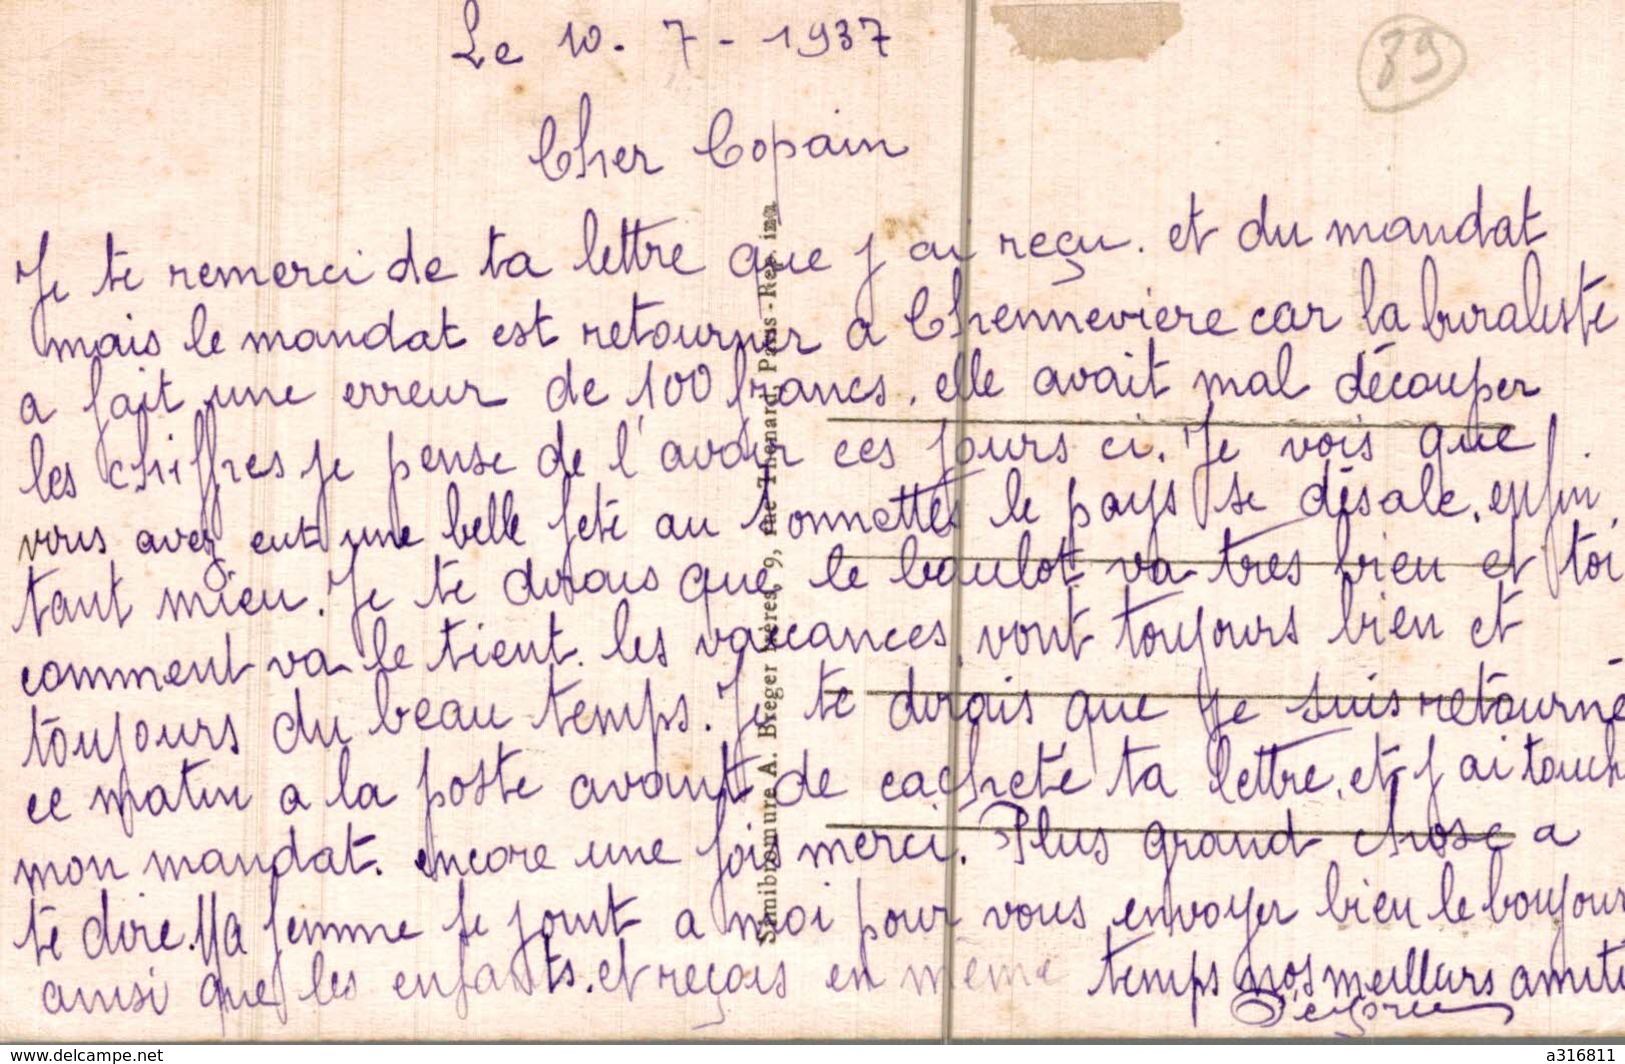 Le 10 - 7 - 1937
89
Cher Copain
Je te remerci de ta lettre que j ai reçu. et du mandat
mais le mandat est retourner a Chenneviere car la buraliste
a fait une erreur de 100 francs. elle avait mal découper
les chiffres je pense de l'avoir ces jours ci. Je vois que
vous avez eut une belle fete au le pays se désale. enfin
tant mieu. Je te dirais que le boulot va tres bien et toi
comment va le tient. les vaccances vont toujours bien et
toujours du beau temps. Je te dirais que je suis retourné
ce matin a la poste avant de cacheté ta lettre, et j ai touch
mon mandat. encore une fois merci. Plus grand chose a
te dire. Ma femme se joint a moi pour vous envoyer bien le boujour
ainsi que les enfants. et reçois en même temps nos meilleurs amiti
Samibromure A. Breger frères, 9, rue Thenard, Paris - Rep. inn
www.delcampe.net
a316811